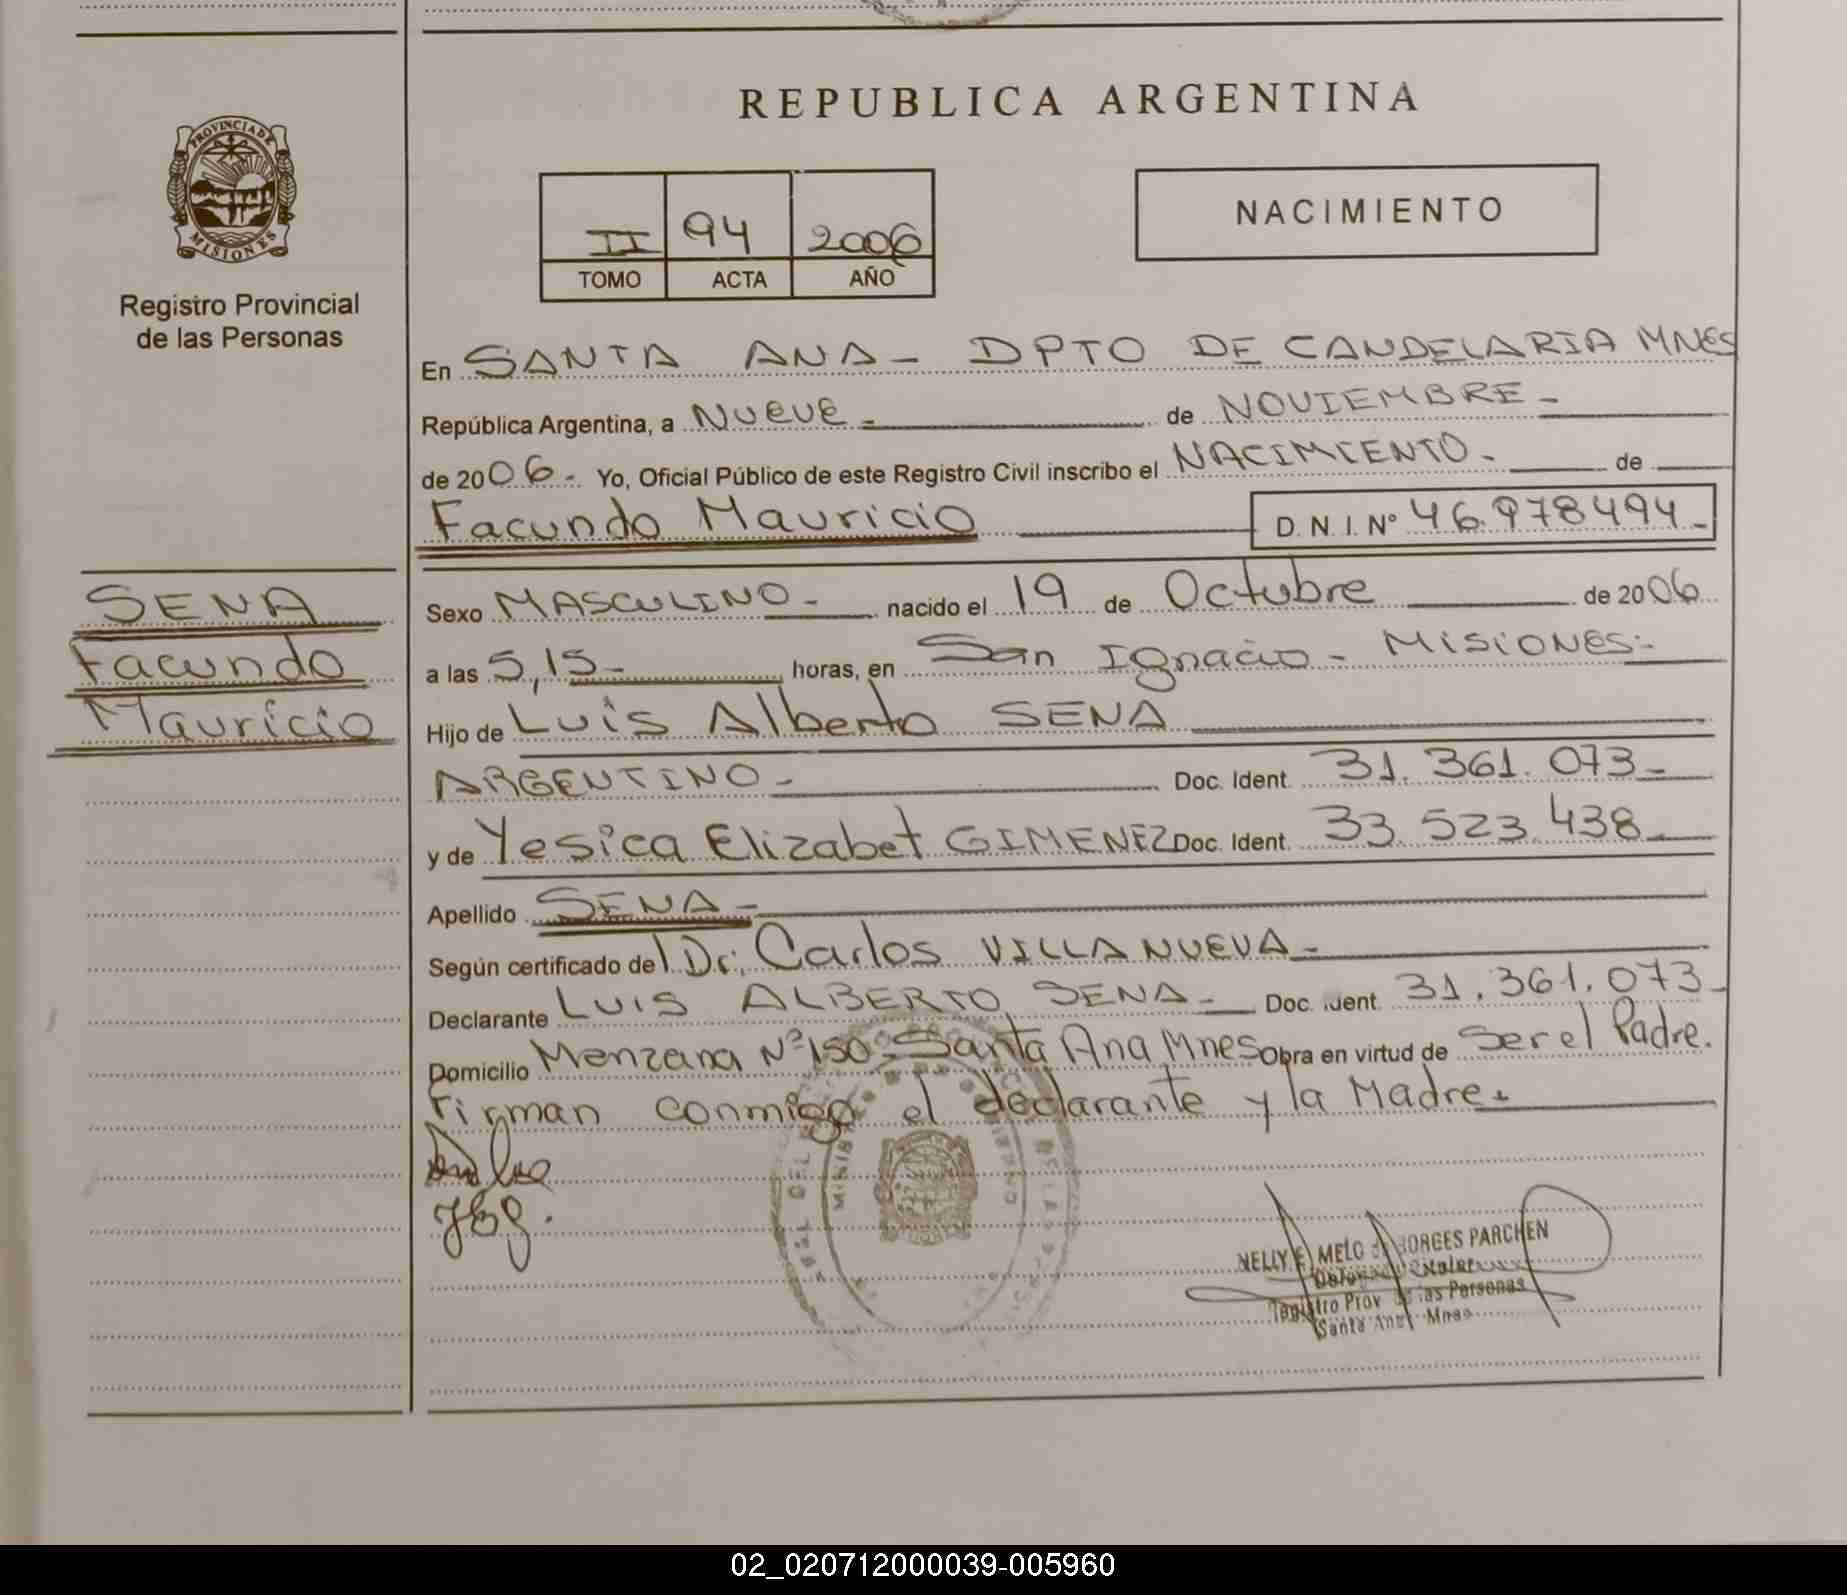 PROVINCIA DE
MISIONES
Registro Provincial
de las Personas
SENA
Facundo
Mauricio
REPUBLICA ARGENTINA
II 94 2006
TOMO ACTA AÑO
NACIMIENTO
En SANTA ANA - DPTO DE CANDELARIA MNES
República Argentina, a NUEVE - de NOVIEMBRE -
de 2006 - Yo, Oficial Público de este Registro Civil inscribo el NACIMIENTO - de
Facundo Mauricio D.N.I. Nº 46.978494 -
Sexo MASCULINO - nacido el 19 de Octubre de 2006
a las 5,15 - horas, en San Ignacio - MISIONES -
Hijo de Luis Alberto SENA
ARGENTINO - Doc. Ident. 31.361.073 -
y de Yesica Elizabet GIMENEZ Doc. Ident. 33.523.438 -
Apellido SENA -
Según certificado del Dr. Carlos VILLANUEVA -
Declarante LUIS ALBERTO SENA - Doc. Ident. 31.361.073 -
Domicilio Menzana Nº 150 - Santa Ana Mnes Obra en virtud de Ser el Padre.
Firman conmigo el declarante y la Madre.
NELLY E. MELO de BORGES PARCHEN
Registro Prov de las Personas
Santa Ana Mnes
02_020712000039-005960